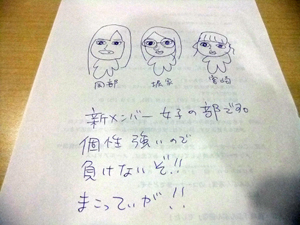 岡部 堀家 宮崎
新メンバー女子の部です。
個性強いので
負けないぞ!!
まこってぃが!!